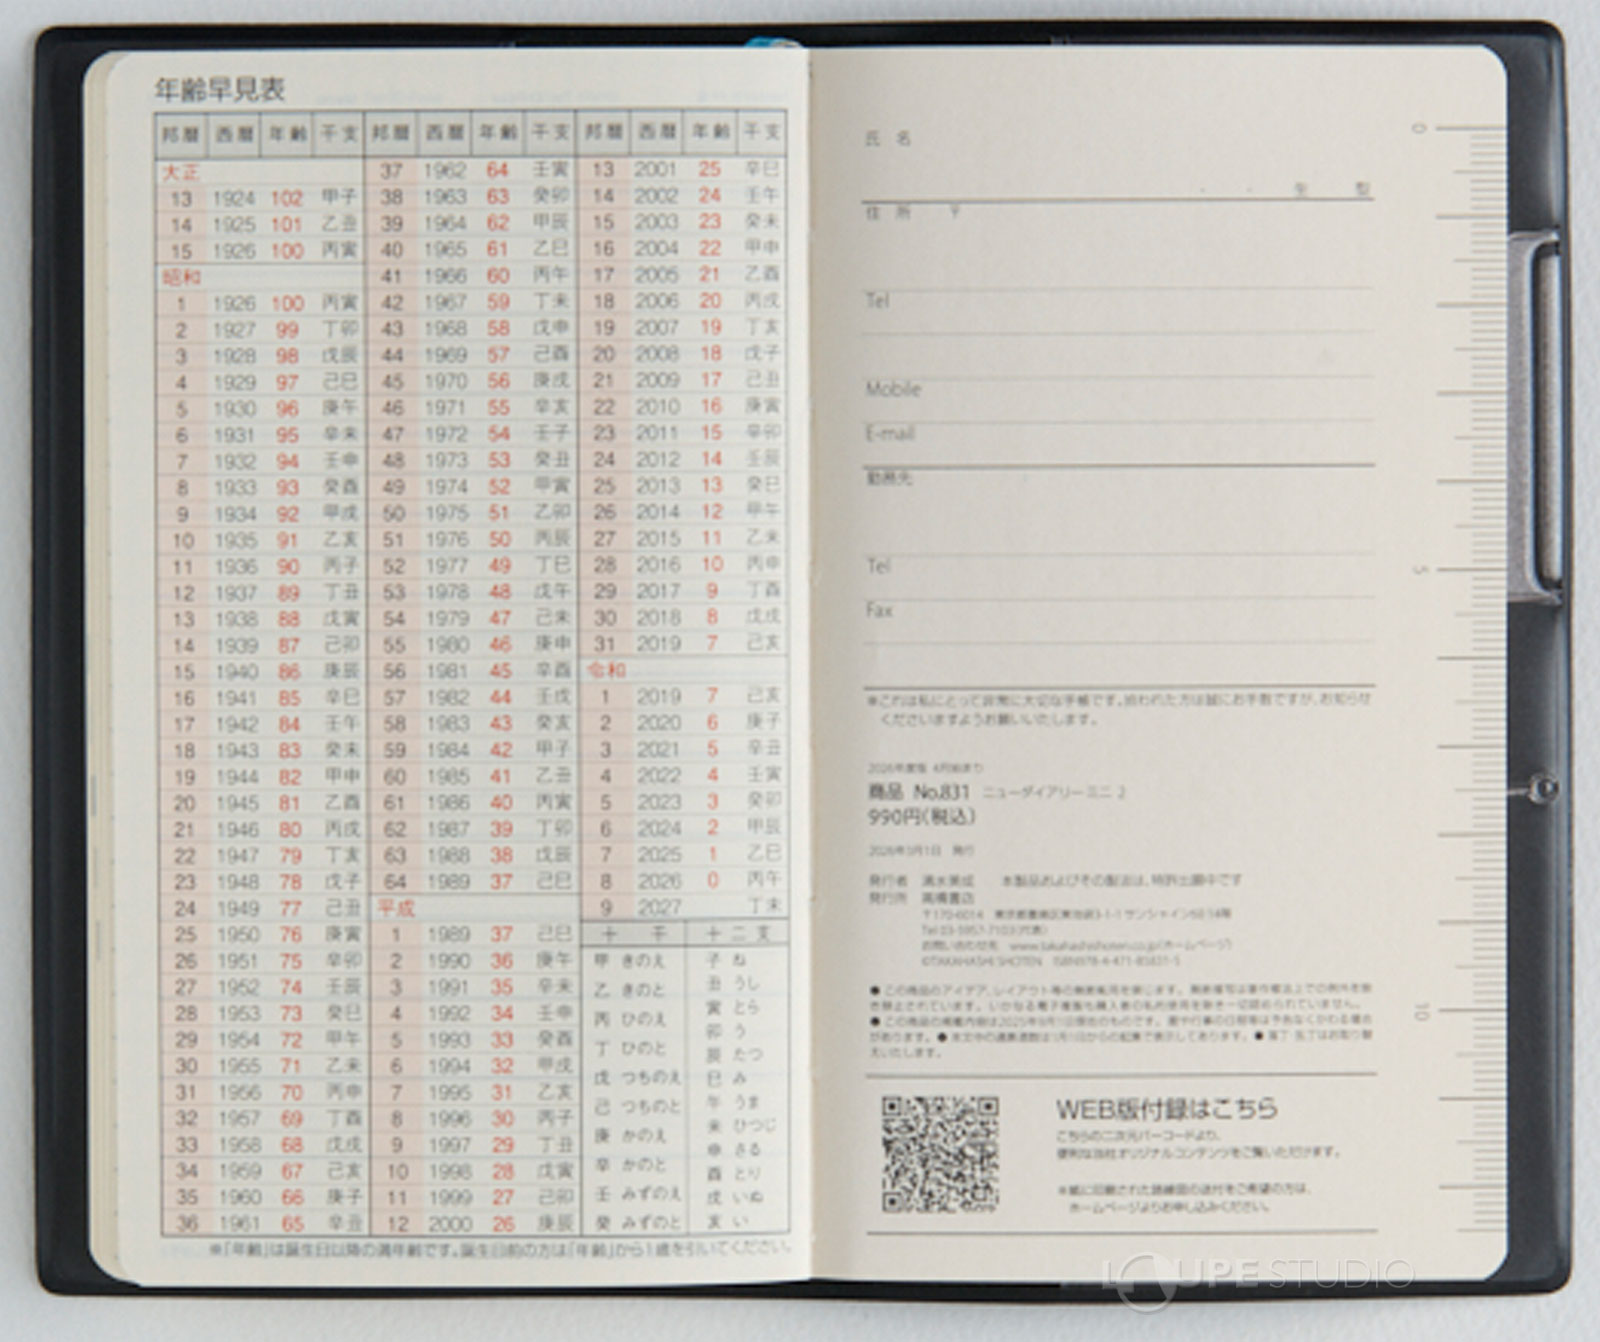 年齢早見表
邦暦 西暦 年齢 干支 邦暦 西暦 年齢 干支 邦暦 西暦 年齢 干支
大正 37 1962 64 壬寅 13 2001 25 辛巳
13 1924 102 甲子 38 1963 63 癸卯 14 2002 24 壬午
14 1925 101 乙丑 39 1964 62 甲辰 15 2003 23 癸未
15 1926 100 丙寅 40 1965 61 乙巳 16 2004 22 甲申
昭和 41 1966 60 丙午 17 2005 21 乙酉
1 1926 100 丙寅 42 1967 59 丁未 18 2006 20 丙戌
2 1927 99 丁卯 43 1968 58 戊申 19 2007 19 丁亥
3 1928 98 戊辰 44 1969 57 己酉 20 2008 18 戊子
4 1929 97 己巳 45 1970 56 庚戌 21 2009 17 己丑
5 1930 96 庚午 46 1971 55 辛亥 22 2010 16 庚寅
6 1931 95 辛未 47 1972 54 壬子 23 2011 15 辛卯
7 1932 94 壬申 48 1973 53 癸丑 24 2012 14 壬辰
8 1933 93 癸酉 49 1974 52 甲寅 25 2013 13 癸巳
9 1934 92 甲戌 50 1975 51 乙卯 26 2014 12 甲午
10 1935 91 乙亥 51 1976 50 丙辰 27 2015 11 乙未
11 1936 90 丙子 52 1977 49 丁巳 28 2016 10 丙申
12 1937 89 丁丑 53 1978 48 戊午 29 2017 9 丁酉
13 1938 88 戊寅 54 1979 47 己未 30 2018 8 戊戌
14 1939 87 己卯 55 1980 46 庚申 31 2019 7 己亥
15 1940 86 庚辰 56 1981 45 辛酉 令和
16 1941 85 辛巳 57 1982 44 壬戌 1 2019 7 己亥
17 1942 84 壬午 58 1983 43 癸亥 2 2020 6 庚子
18 1943 83 癸未 59 1984 42 甲子 3 2021 5 辛丑
19 1944 82 甲申 60 1985 41 乙丑 4 2022 4 壬寅
20 1945 81 乙酉 61 1986 40 丙寅 5 2023 3 癸卯
21 1946 80 丙戌 62 1987 39 丁卯 6 2024 2 甲辰
22 1947 79 丁亥 63 1988 38 戊辰 7 2025 1 乙巳
23 1948 78 戊子 64 1989 37 己巳 8 2026 0 丙午
24 1949 77 己丑 平成 9 2027 丁未
25 1950 76 庚寅 1 1989 37 己巳 十干 十二支
26 1951 75 辛卯 2 1990 36 庚午 甲 きのえ 子 ね
27 1952 74 壬辰 3 1991 35 辛未 乙 きのと 丑 うし
28 1953 73 癸巳 4 1992 34 壬申 丙 ひのえ 寅 とら
29 1954 72 甲午 5 1993 33 癸酉 丁 ひのと 卯 う
30 1955 71 乙未 6 1994 32 甲戌 戊 つちのえ 辰 たつ
31 1956 70 丙申 7 1995 31 乙亥 己 つちのと 巳 み
32 1957 69 丁酉 8 1996 30 丙子 庚 かのえ 午 うま
33 1958 68 戊戌 9 1997 29 丁丑 辛 かのと 未 ひつじ
34 1959 67 己亥 10 1998 28 戊寅 壬 みずのえ 申 さる
35 1960 66 庚子 11 1999 27 己卯 癸 みずのと 酉 とり
36 1961 65 辛丑 12 2000 26 庚辰 戌 いぬ
亥 い
※「年齢」は誕生日以降の満年齢です。誕生日前の方は「年齢」から1歳を引いてください。
氏名
生 型
住所 〒
Tel
Mobile
E-mail
勤務先
Tel
Fax
※これは私にとって非常に大切な手帳です。拾われた方は誠にお手数ですが、お知らせ
くださいますようお願いいたします。
2026年度版 4月始まり
商品 No.831 ニューダイアリー ミニ 2
990円(税込)
2026年3月1日 発行
発行者 清水美成 本製品およびその製法は、特許出願中です
発行所 高橋書店
〒170-6014 東京都豊島区東池袋3-1-1 サンシャイン60 14階
Tel 03-5957-7103(代表)
お問い合わせ先 www.takahashishoten.co.jp(ホームページ)
©TAKAHASHI SHOTEN ISBN978-4-471-85831-5
WEB版付録はこちら
こちらの二次元バーコードより、
便利な当社オリジナルコンテンツをご覧いただけます。
※紙に印刷された路線図の送付をご希望の方は、
ホームページよりお申し込みください。
0
5
10
LOUPE STUDIO